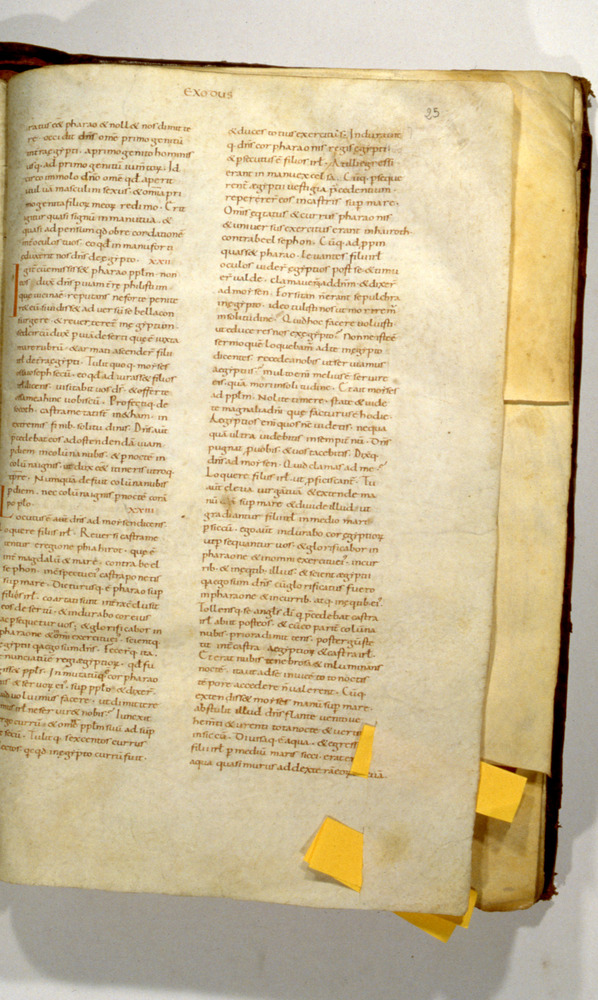 EXODUS
25
iratus eet pharao & nollet nos dimittere
re · occidit dn̄s om̄e primogenitū
intra ægypti · a primogenito hominis
usq; ad primogenitū iumtoꝝ · Id
circo immolo dn̄o om̄e qd aperit
uuluā masculini sexus · & omīa pri
mogenita filioꝝ meoꝝ redimo · Erit
igitur quasi signū in manu tua · &
quasi adpensum qd obre cordationē
int̄ oculos tuos · eo qd in manu forti
eduxerit nos dn̄s de ægypto · XXII
Igit̄ cū emisisset pharao pplm · non
eos dux dn̄s p uiam t̄re philistim ·
que uicina ē · reputans ne forte penite
ret eū si uidisset aduersū se bella con
surgere · & reuerteret̄ in ægyptum
sed circūduxit p uiā deserti que ē iuxta
mare rubrū · & armati ascender̄ filii
isrl de t̄ra ægypti · Tulit quoq · moyses
ossa ioseph secū · eo qd adiurasset filios
isrl dicens · uisitabit uos ds̄ · & efferte
ossa mea hinc uobiscū · Profectiq; de
socoth · castrametati s̄ in &ham · in
extremis finib; solitudinis · Dn̄s aut̄
p̄cedebat eos ad ostendendā uiam ·
p diem in colūna nubis · & p nocte in
colūna ignis · ut dux eēt itineris utroq
tpre · Numquā defuit colūna nubis
p diem · nec colūna ignis p nocte corā
populo · XXIII
Locutus ē aut̄ dn̄s ad moysen dicens ·
loquere filiis isrl · Reuersi castrame
tentur e regione phiahirot · que ē
int̄ magdalū & mare · contra beel
sephon · in c̄spectu ei castra ponetis
sup mare · Dicturusq; ē pharao sup
filiis isrl · coartati sunt in t̄ra c̄clusit
eos desertū · & indurabo cor eius
ac p̄sequetur uos · & glorificabor in
pharaone & om̄i exercitu ei · scientq
ægyptii qa ego sum dn̄s · Fecer̄q ita ·
& nunciatū ē regi ægyptioꝝ · qd fu
gisset ppls · Inmutatūq; ē cor pharao
nis & seruoꝝ ei · sup pplo · & dixer̄ ·
quid uoluimus facere · ut dimitterem
mus isrl ne seruiret nobis · Iunxit
ergo currū · & om̄e pplm suū adsūp
sit secū · Tulitq · sexcentos currus
electos · & qcqd in ægypto currū fuit ·
& duces totius exercitus · Indurauit
q · dn̄s cor pharaonis regis ægypti
& p̄secutus ē filios isrl · At illi egressi
erant in manu excelsa · Cūq; p̄seque
rent̄ ægyptii uestigia p̄cedentium ·
reperere r̄ eos in castris sup mare ·
Om̄is equitatus & currus pharaonis
& uniuersus exercitus erant in hairoth ·
contra beel sephon · Cūq; ad ppin
quasset pharao · leuantes filii isrl
oculos uider̄ ægyptios post se · & timu
er̄ ualde · clamauer̄q; ad dn̄m · & dixer̄
ad moysen · Forsitan n̄ erant sepulchra
in ægypto · ideo tulisti nos ut moreremr̄
in solitudine · Quid hoc facere uoluisti ·
ut educeres nos ex ægypto · Nonne iste ē
sermo quē loquebam̄ ad te in ægypto
dicentes · recede a nobis ut seruiamus
ægyptiis · multo em̄ melius ē seruire
eis quā mori in solitudine · Et ait moyses
ad pplm · Nolite timere · state & uide
te magnalia dn̄i que facturus ē hodie ·
Aegyptios em̄ quos nc̄ uidetis · nequa
quā ultra uidebitis in sempit̄nū · Dn̄s
pugnat p uobis · & uos tacebitis · Dixq;
dn̄s ad moysen · Quid clamas ad me ·
Loquere filiis isrl · ut p̄ficiscant̄ · Tu
aut̄ eleua uirgā tuā · & extende ma
nū tuā sup mare · & diuide illud · ut
gradiantur filii isrl in medio mari
p siccū · ego aut̄ indurabo cor ægyptioꝝ
ut p̄sequantur uos · & glorificabor in
pharaone & in omni exercitu ei · in cur
rib; & in eqtib; illius · & scient ægyptii
qa ego sum dn̄s cū glorificatus fuero
in pharaone & in currib; atq; in eqtib; ei ·
Tollensq; se angls dī q p̄cedebat castra
isrl abiit post eos · & cū eo parit̄ colūna
nubis · priora dimittens · post tergū ste
tit int̄ castra Aegyptioꝝ & castra isrl ·
Et erat nubis tenebrosa & inluminans
nocte · ita ut ad se inuicē toto noctis
tēpore accedere n̄ ualerent · Cūq;
extendisset moyses manū sup mare ·
abstulit illud dn̄s flante uento ue
hemti & urenti tota nocte · & uertit
in siccū · Diuisaq; ē aqua · & egressi
filii isrl p mediū maris sicci · erat em̄
aqua quasi murus ad dextera eoꝝ